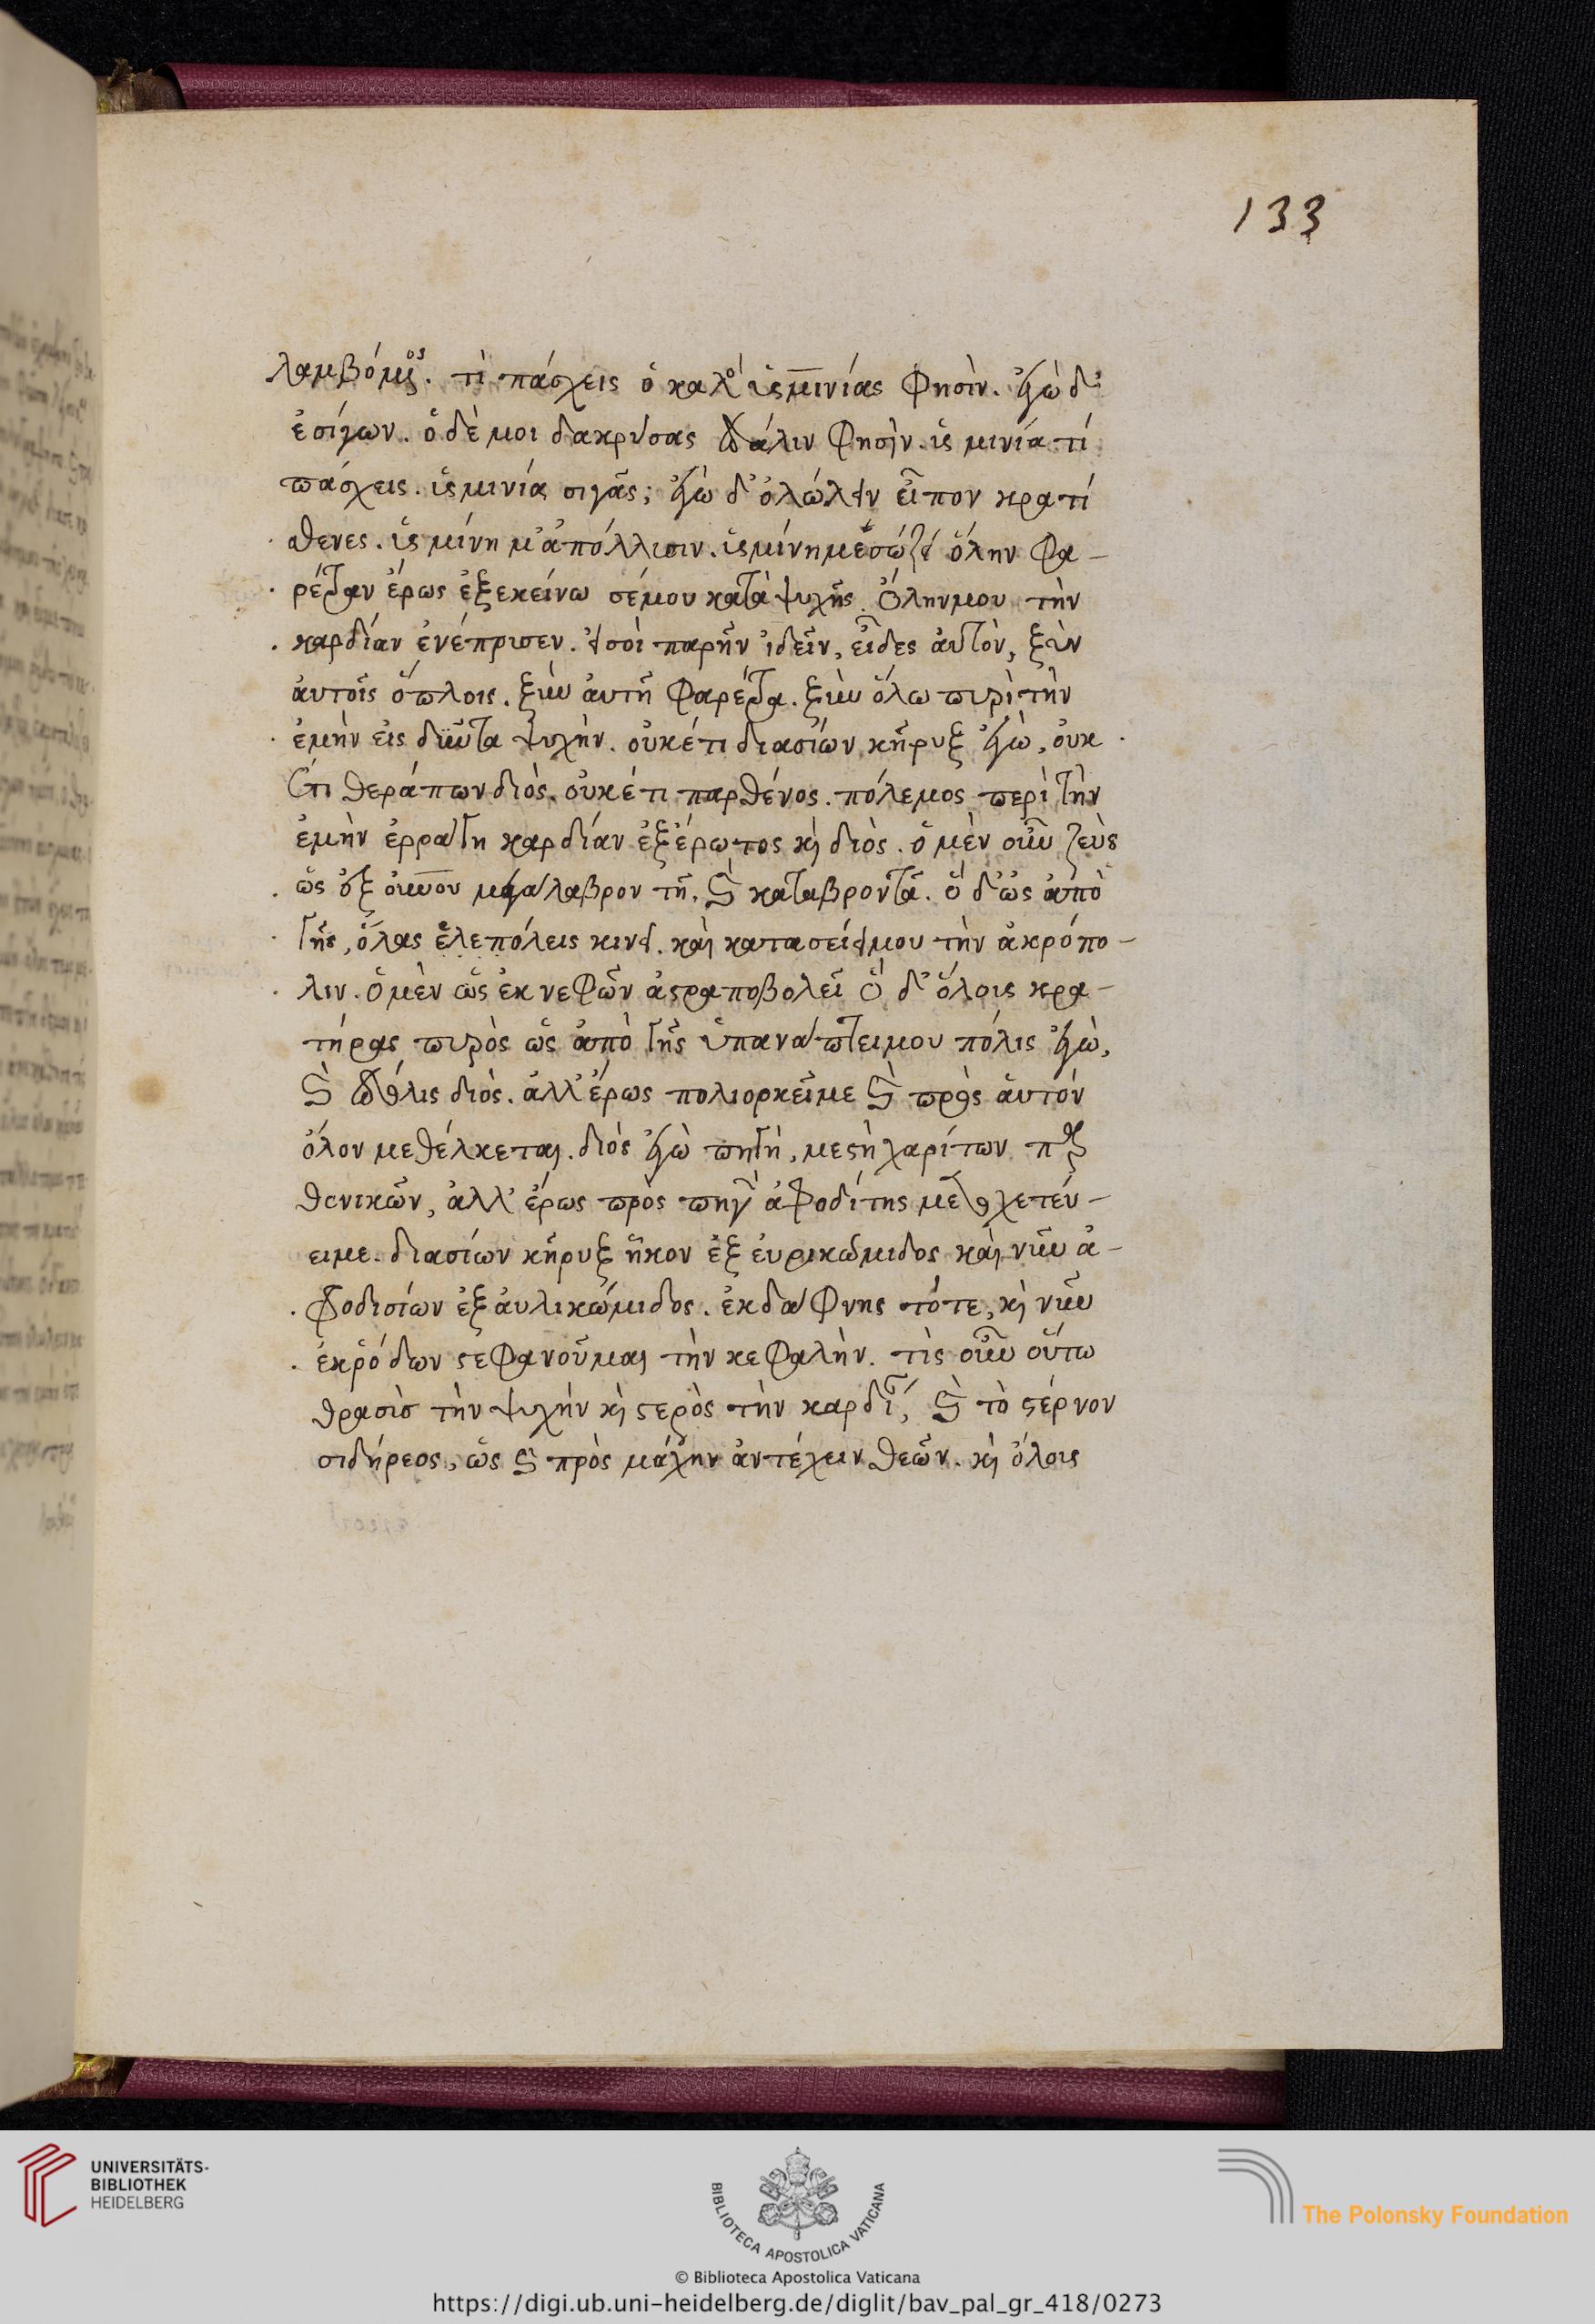 133
λαμβόμενος. τὶ πάσχεις ὁ καλὸς ὑσμινίας φησὶν. ἐγὼ δ'
ἐσίγων. ὁ δὲ μοι δακρύσας πάλιν φησὶν. ὑσμινία τί
πάσχεις. ὑσμινία σιγᾶς; ἐγὼ δ' ὀλώλειν εἶπον κρατί
σθενες. ὑσμίνη μ' ἀπόλλυσιν. ὑσμίνη με σώζει ὅλην φα-
ρέτραν ἔρως ἐξεκείνωσέ μου κατὰ ψυχῆς. ὅλην μου τὴν
καρδίαν ἐνέπρισεν. εἰ σοὶ παρῆν ἰδεῖν, εἶδες ἀυτὸν, ξὺν
ἀυτοῖς ὅπλοις. ξὺν ἀυτῆ φαρέτρα. ξὺν ὅλω πυρὶ τὴν
ἐμὴν εἰσδύντα ψυχὴν. οὐκέτι διασίων κῆρυξ ἐγὼ, οὐκ
έτι θεράπων διὸς. οὐκέτι παρθένος. πόλεμος περὶ τὴν
ἐμὴν ἐρράγη καρδίαν ἐξ ἔρωτος κὶ διὸς. ὁ μὲν οὖν ζεὺς
ὡς ἐξ οὐρανοῦ μεγάλαβροντῆ. καὶ καταβροντᾶ. ὁ δ' ὡς ἀπὸ
γῆς, ὅλας ἑλεπόλεις κινεῖ. καὶ κατασείει μου τὴν ἀκρόπο-
λιν. ὁ μὲν ὡς ἐκ νεφῶν ἀστραποβολεῖ ὁ δ' ὅλους κρα-
τήρας πυρὸς ὡς ἀπὸ γῆς ὑπανάπτει μου πόλις ἐγὼ,
καὶ πόλις διὸς. ἀλλ' ἔρως πολιορκεῖ με καὶ πρὸς ἀυτόν
ὅλον μεθέλκεται. διὸς ἐγὼ πηγὴ, μεστὴ χαρίτων παρ
θενικῶν, ἀλλ' ἔρως πρὸς πηγὴν ἀφροδίτης μετοχετέυ-
ει με. διασίων κῆρυξ ἧκον ἐξ ἐυρικώμιδος καὶ νῦν ἀ-
φροδισίων ἐξ ἀυλικώμιδος. ἐκ δάφνης τότε, κὶ νῦν
ἐκ ῥόδων στεφανοῦμαι τὴν κεφαλὴν. τὶς οὖν οὕτω
θρασὺσ τὴν ψυχήν κὶ στερὸς τὴν καρδίαν, καὶ τὸ στέρνον
σιδήρεος, ὡς καὶ πρὸς μάχην ἀντέχειν θεῶν. κὶ ὅλοις
UNIVERSITÄTS-
BIBLIOTHEK
HEIDELBERG
BIBLIOTECA APOSTOLICA VATICANA
The Polonsky Foundation
© Biblioteca Apostolica Vaticana
https://digi.ub.uni-heidelberg.de/diglit/bav_pal_gr_418/0273